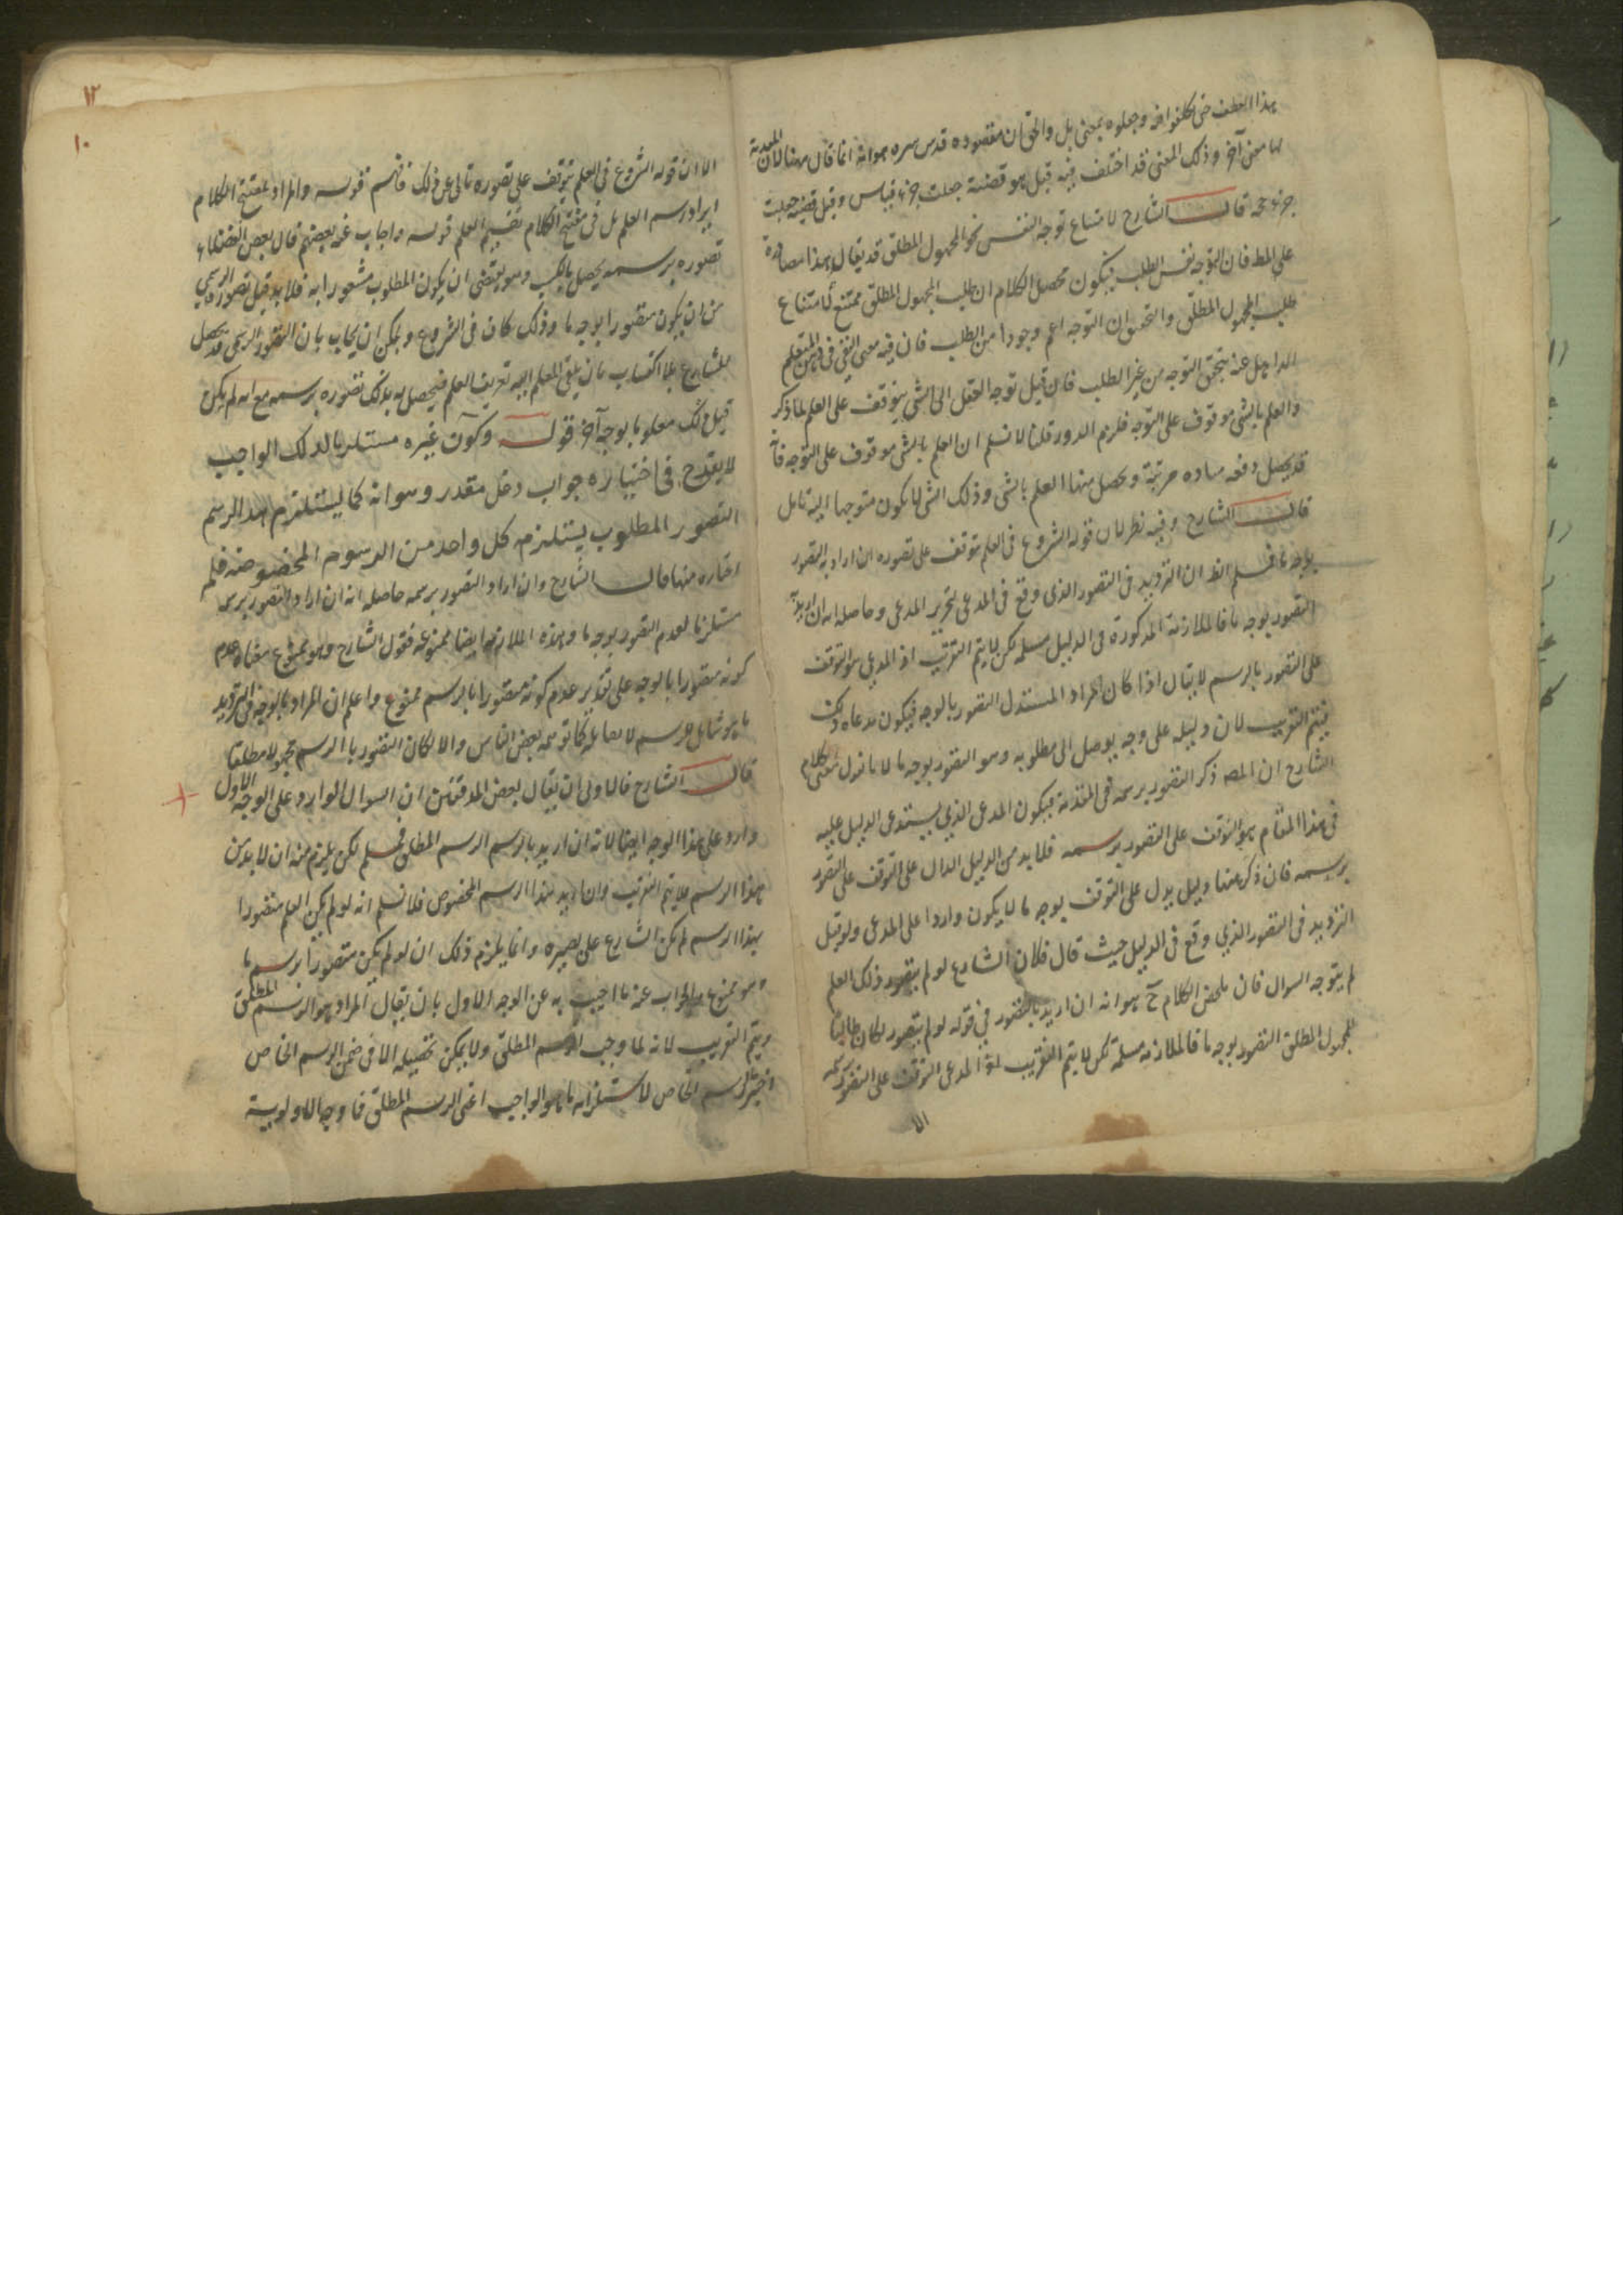 هذا العطف حتى تكلفوا فيه وجعلوه بمعنى بل والحق ان مقصوده قدس سره هو انه انما قال ههنا لان المقدمة
لها معنى آخر وذلك المعنى قد اختلف فيه قيل هو قضية جعلت جزء قياس وقيل قضية جعلت
جزء حجة قال الشارح لامتناع توجه النفس نحو المجهول المطلق قد يقال هذا مصادرة
على المط فان التوجه نفس الطلب فيكون محصل الكلام ان طلب المجهول المطلق ممتنع لامتناع
طلب المجهول المطلق والتحقيق ان التوجه اعم وجودا من الطلب فان فيه معنى
عنه يتحقق التوجه من غير الطلب فان قيل توجه العقل الى الشئ يتوقف على العلم لما ذكر
والعلم بالشئ موقوف على التوجه فلزم الدور قلنا لا نسلم ان العلم بالشئ موقوف على التوجه فانه
قد يحصل دفعة مرتبة ويحصل منها العلم بالشئ وذلك الشئ لا يكون متوجها اليه تامل
قال الشارح وفيه نظر لان قوله الشروع فى العلم يتوقف على تصوره ان اراد به التصور
بوجه ما فمسلم الظ ان الترديد فى التصور الذى وقع فى المدعى لتحرير المدعى وحاصله انه ان اريد
التصور بوجه ما فالملازمة المذكورة فى الدليل مسلمة لكن لا يتم التقريب اذ المدعى هو التوقف
على التصور بالرسم لا يقال اذا كان المراد المستدل التصور بالوجه فيكون مدعاه ذلك
فيتم التقريب لان دليله على وجه يوصل الى مطلوبه وهو التصور بوجه ما لانا نقول معنى كلام
الشارح ان المصه ذكر التصور برسمه فى المقدمة فيكون المدعى الذي يستدعى الدليل عليه
فى هذا المقام هو التوقف على التصور برسمه فلا بد من الدليل الدال على التوقف على التصور
برسمه فان ذكر ههنا دليل يدل على التوقف بوجه ما لا يكون واردا على المدعى ولو قيل
الترديد فى التصور الذي وقع فى الدليل حيث قال فلان الشارع لو لم يتصور ذلك العلم
لم يتوجه السوال فان ملخص الكلام ح هو انه ان اريد بالتصور في قوله لو لم يتصور لكان طالبا
للمجهول المطلق التصور بوجه ما فالملازمة مسلمة لكن لا يتم التقريب اذ المدعى التوقف على التصور برسمه
الا
١٢
١٠
الا ان قوله الشروع فى العلم يتوقف على تصوره تالى عن ذلك فافهم قوله والمراد بمفتتح الكلام
ايراد رسم العلم بل فى مفتتح الكلام تقسيم العلم قوله واجاب عنه بعضهم قال بعض الفضلاء
تصوره برسمه يحصل بالكسب وهو يقتضى ان يكون المطلوب مشعورا به فلا بد قبل تصوره الرسمي
من ان يكون متصورا بوجه ما وذلك كان فى الشروع ويمكن ان يجاب بان التصور الرسمى قد يحصل
للشارع بلا اكتساب بان يلقى المعلم اليه تعريف العلم فيحصل له بذلك تصوره برسمه مع انه لم يكن
قبل ذلك معلوما بوجه آخر قوله وكون غيره مستلزما لذلك الواجب
لا يقدح فى اختياره جواب دخل مقدر وهو انه كما يستلزم هذا الرسم
التصور المطلوب يستلزمه كل واحد من الرسوم المخصوصة فلم
اختاره منها قال الشارح وان اراد التصور برسمه حاصله انه ان اراد التصور برسمه
مستلزما لعدم التصور بوجه ما وهذه الملازمة ايضا ممنوعة فقول الشارح وهو ممنوع معناه عدم
كونه متصورا بالوجه على تقدير عدم كونه متصورا بالرسم ممنوع واعلم ان المراد بالوجه فى الترديد
ما هو شامل للرسم لا مقابله كما توهمه بعض الناس والا لكان التصور بالرسم مجهولا مطلقا
قال الشارح فالاولى ان يقال بعض المدققين ان السوال الوارد على الوجه الاول
وارد على هذا الوجه ايضا لانه ان اريد بالرسم الرسم المطلق فمسلم لكن يلزم منه ان لا بد من
هذا الرسم فلا يتم التقريب وان اريد هذا الرسم المخصوص فلا نسلم انه لو لم يكن العلم متصورا
بهذا الرسم لم يكن الشارع على بصيرة وانما يلزم ذلك ان لو لم يكن متصورا برسم ما
وهو ممنوع والجواب عنه ما اجيب به عن الوجه الاول بان يقال المراد هو الرسم المطلق
ويتم التقريب لانه لما وجب الرسم المطلق ولا يمكن تحصيله الا فى ضمن الرسم الخاص
اختير الرسم الخاص لاستلزامه ما هو الواجب اعنى الرسم المطلق فاوجه الاولوية